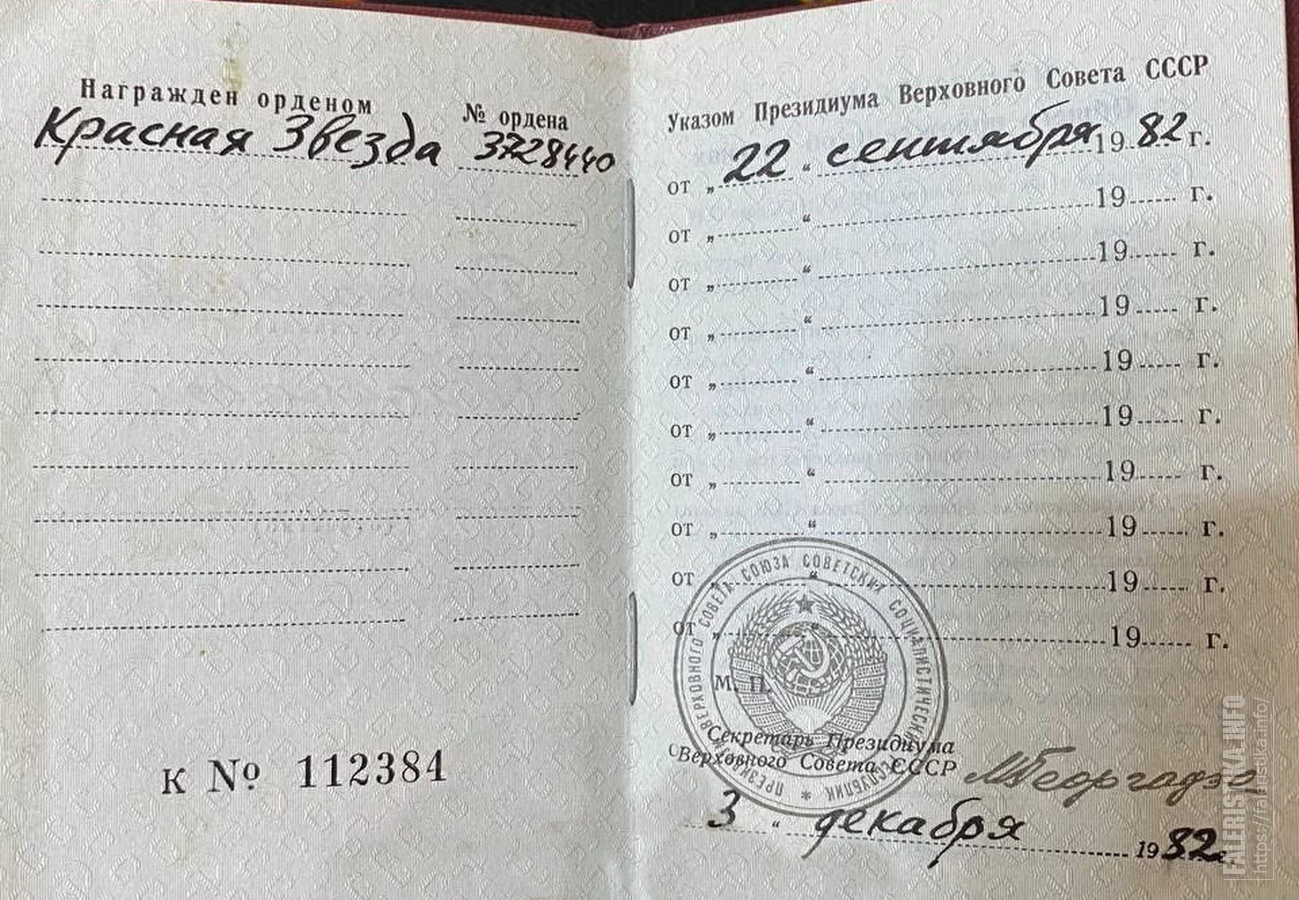 Награжден орденом
№ ордена
Красная Звезда 3728440
К № 112384
Указом Президиума Верховного Совета СССР
от „ 22 “ сентября 1982 г.
от „ “ 19 г.
от „ “ 19 г.
от „ “ 19 г.
от „ “ 19 г.
от „ “ 19 г.
от „ “ 19 г.
от „ “ 19 г.
от „ “ 19 г.
от „ “ 19 г.
ПРЕЗИДИУМ ВЕРХОВНОГО СОВЕТА СОЮЗА СОВЕТСКИХ СОЦИАЛИСТИЧЕСКИХ РЕСПУБЛИК
М. П.
Секретарь Президиума
Верховного Совета СССР
МГеоргадзе
3 “ декабря 1982 г.
FALERISTIKA.INFO
https://faleristika.info/